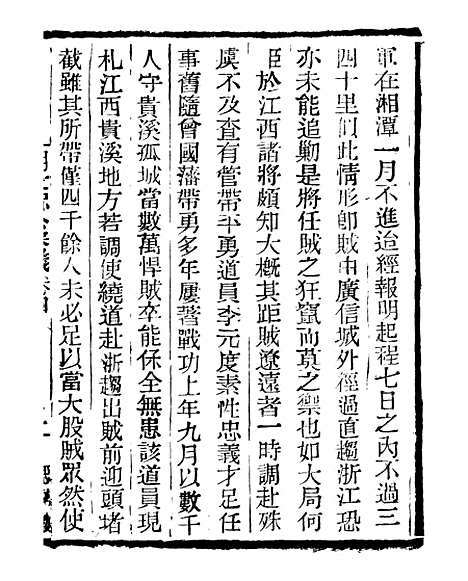 軍在湘潭一月不進迨經報明起程七日之內不過三
四十里似此情形卽賊由廣信城外徑過直趨浙江恐
亦未能追勦是將任賊之狂竄而莫之禦也如大局何
臣於江西諸將頗知大槪其距賊遼遠者一時調赴殊
虞不及查有管帶平勇道員李元度素性忠義才足任
事舊隨曾國藩帶勇多年屢著戰功上年九月以數千
人守貴溪孤城當數萬悍賊卒能保全無患該道員現
札江西貴溪地方若調使繞道赴浙趨出賊前迎頭堵
截雖其所帶僅四千餘人未必足以當大股賊眾然使